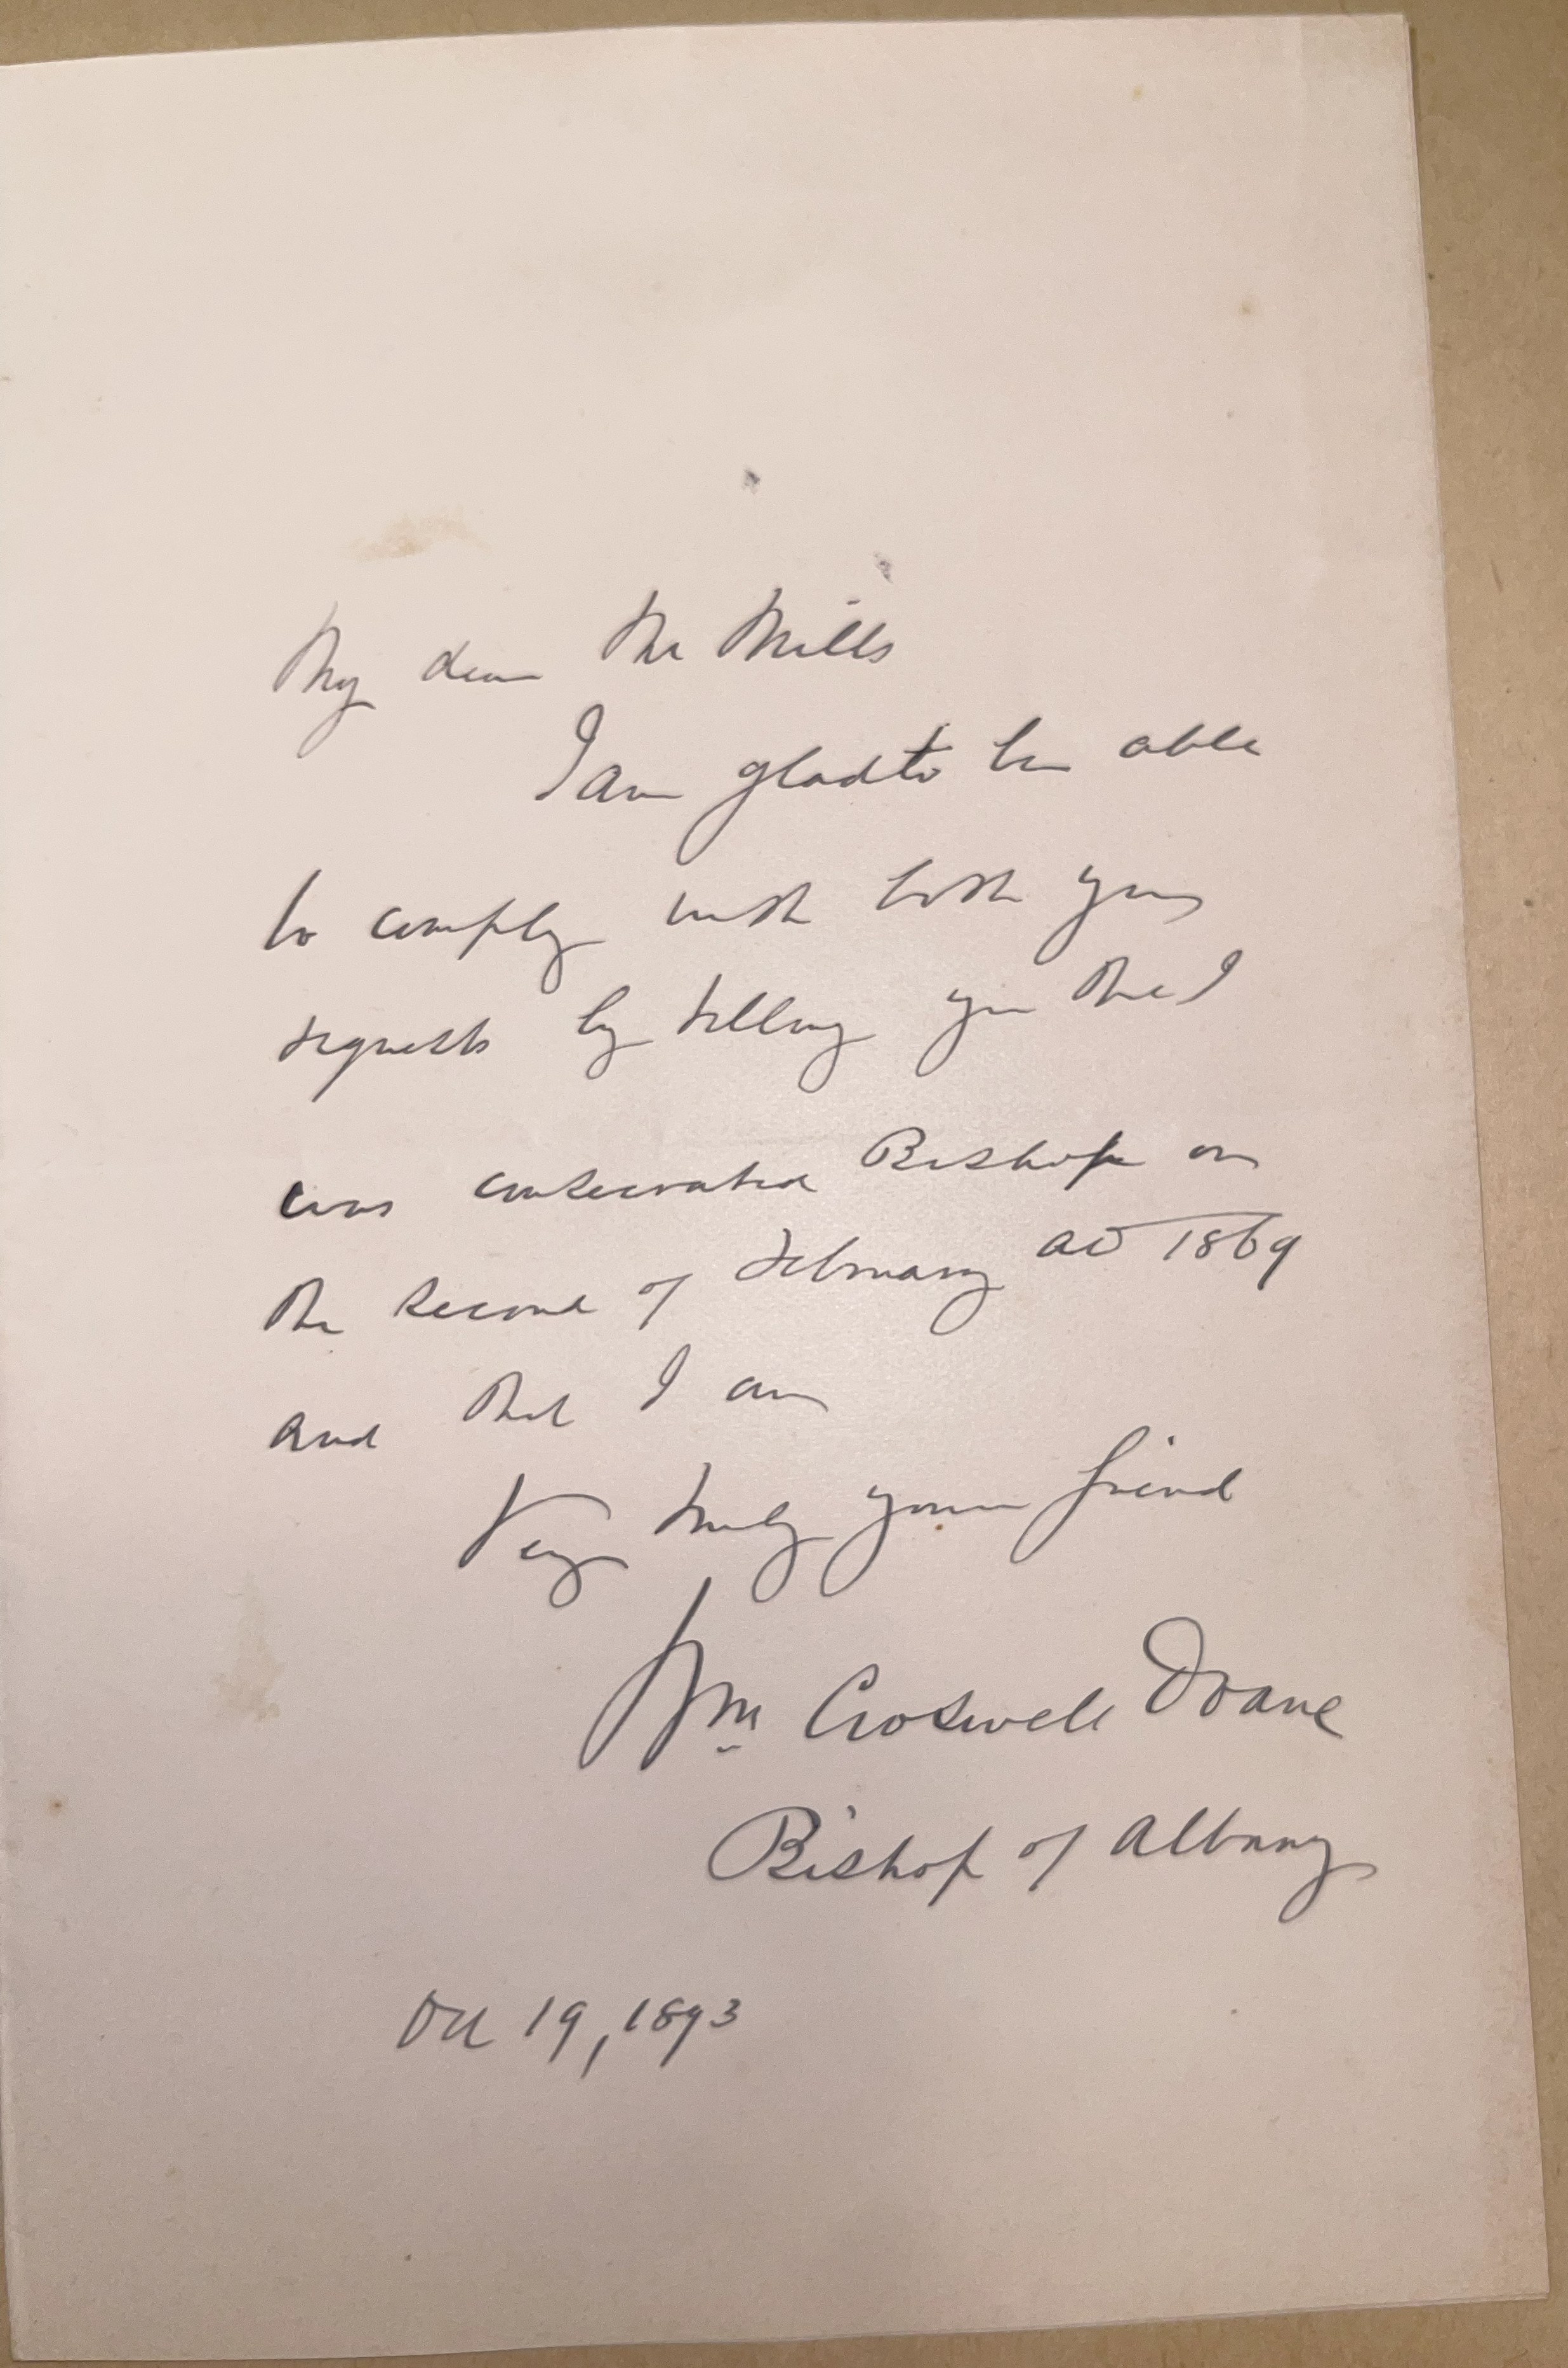 My dear Mr Mills
I am glad to be able
to comply with both your
requests by telling you that I
was consecrated Bishop on
the second of February AD 1869
and that I am
Very truly your friend
Wm Croswell Doane
Bishop of Albany
Oct 19, 1893